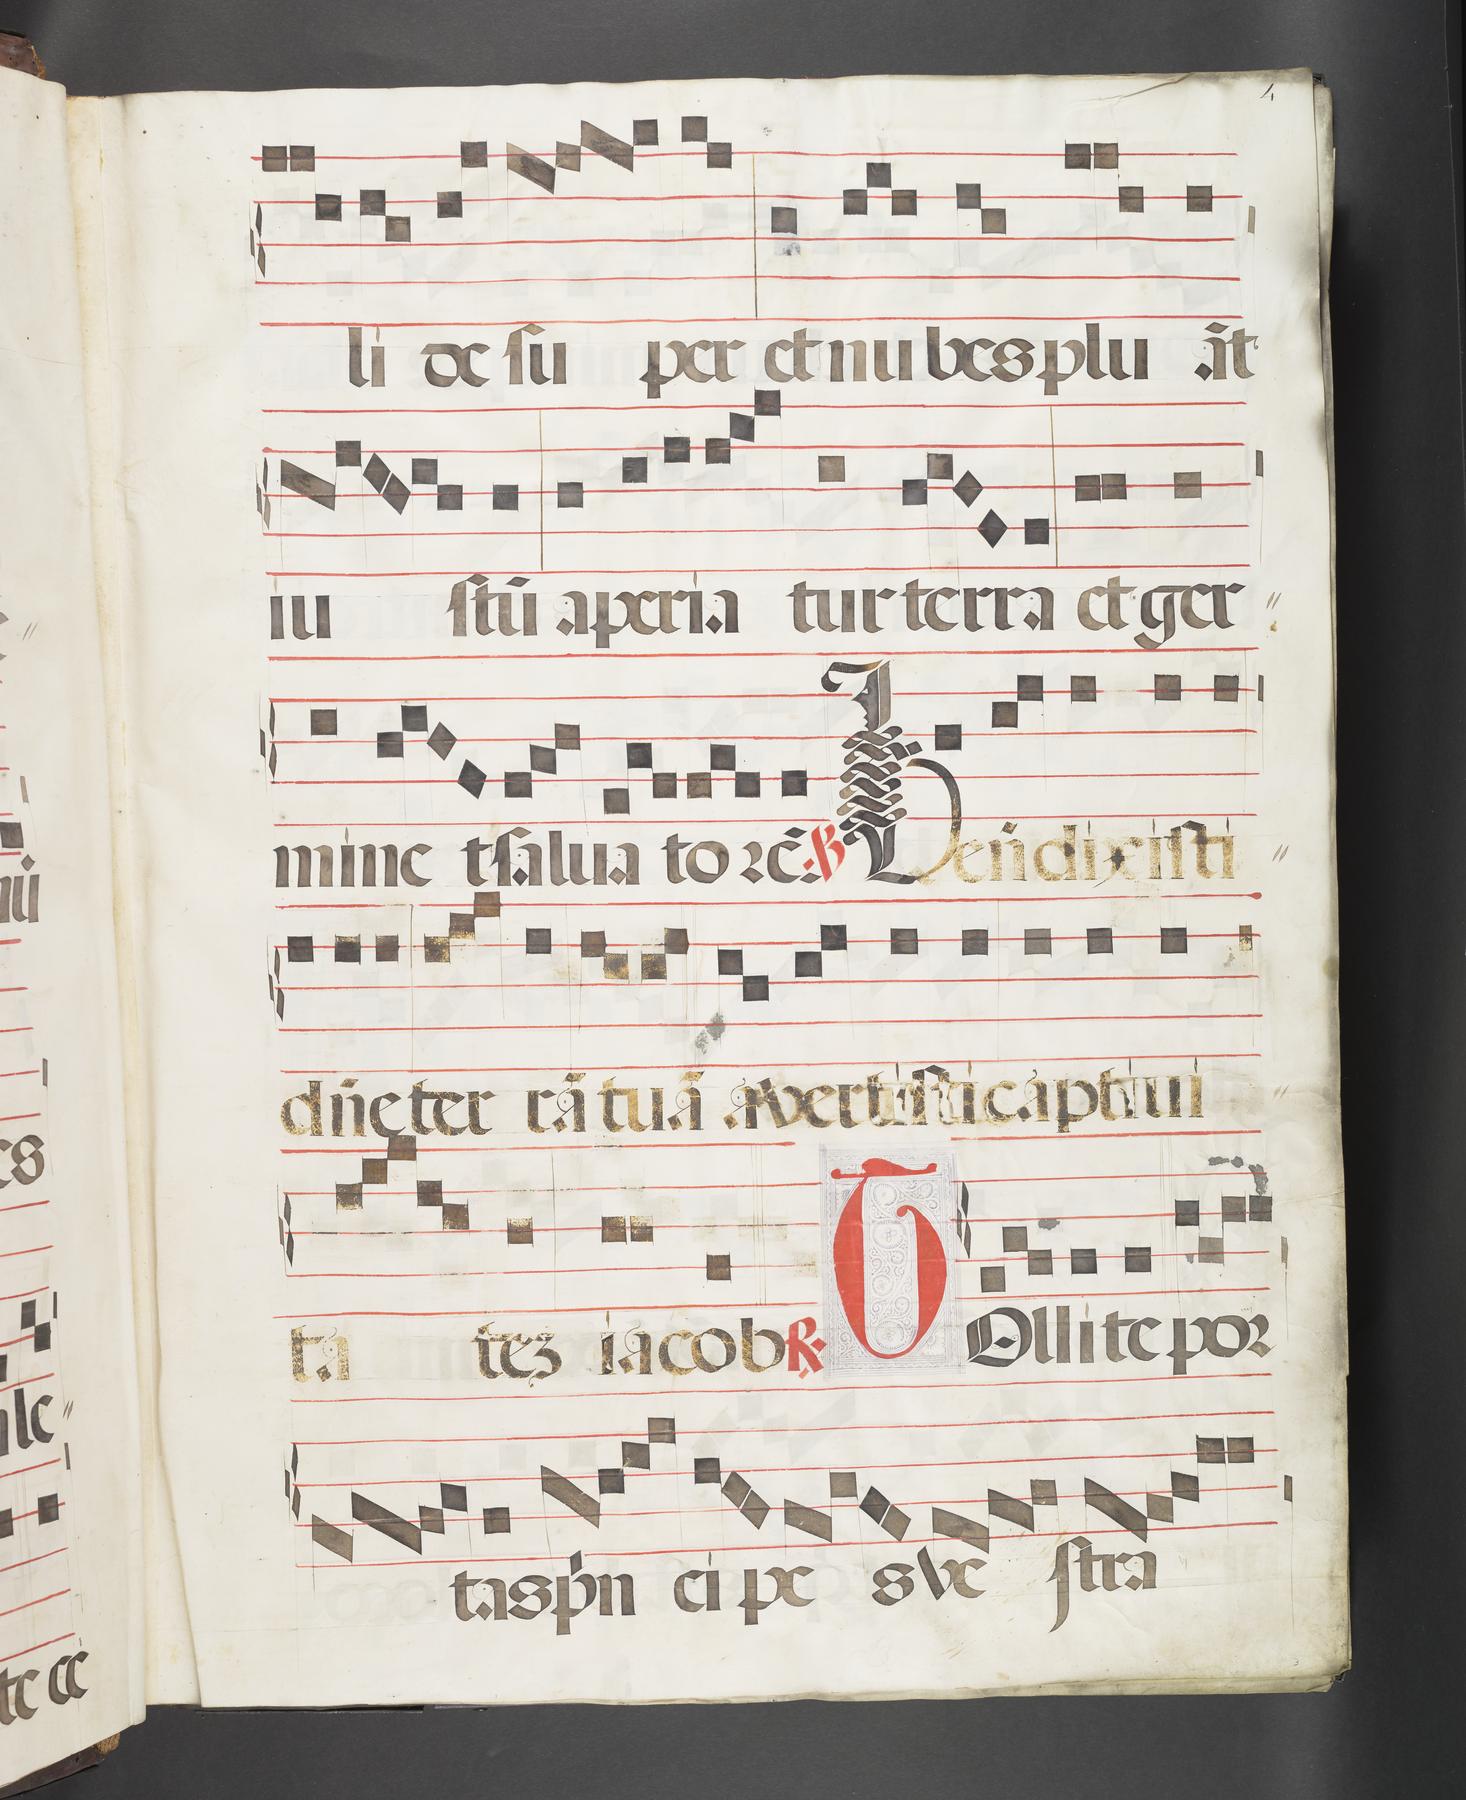 4
li de su per et nu bes plu āt
iu stū aperia tur terra et ger
minet salua to rē. ℣ Ben̄dixisti
dn̄e ter rā tuā avertisti captiui
ta tez iacob ℟. TOllite por
tas p̄n ci pe s ve stra